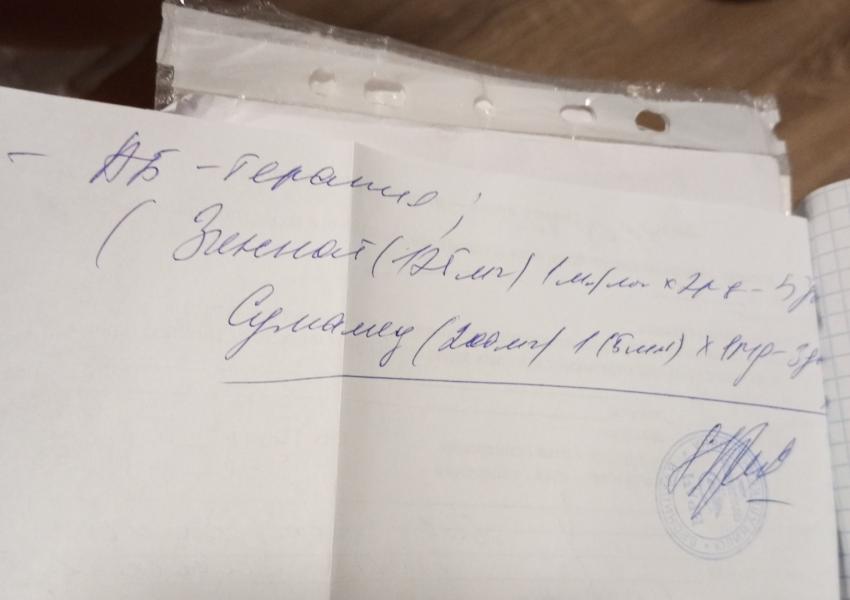 - АБ - терапия;
( Зиннат (125мг) 1 м/л x 2р д - 5 д
Сумамед (200мг) 1 (5мл) x 1р/д - 3 д